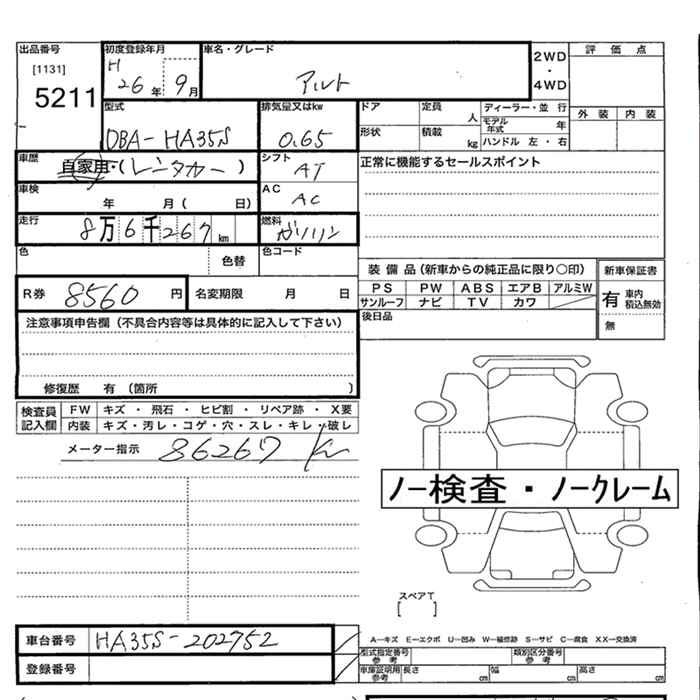 出品番号 初度登録年月 車名・グレード 評価点
[1131] H 2WD
5211 26年 9月 アルト ・
4WD
型式 排気量又はkw ドア 定員 人 ディーラー・並行 外装 内装
モデル年式 年
DBA-HA35S 0.65 形状 積載 kg ハンドル 左・右
車歴 自家用・(レンタカー) シフト AT 正常に機能するセールスポイント
車検 年 月( 日) AC AC
走行 8万6千267km 燃料 ガソリン
色 色替 色コード
装備品(新車からの純正品に限り〇印) 新車保証書
R券 8560円 名変期限 月 日 PS PW ABS エアB アルミW 有 車内積込無効
サンルーフ ナビ TV カワ
注意事項申告欄(不具合内容等は具体的に記入して下さい) 後日品 無
修復歴 有(箇所 )
検査員記入欄 FW キズ・飛石・ヒビ割・リペア跡・X要
内装 キズ・汚レ・コゲ・穴・スレ・キレ・破レ
メーター指示 86267 Km
ノー検査・ノークレーム
スペアT
[ ]
車台番号 HA35S-202752 A―キズ E―エクボ U―凹み W―補修跡 S―サビ C―腐食 XX―交換済
型式指定番号 参考 類別区分番号 参考
登録番号 車庫証明用参考 長さ cm 幅 cm 高さ cm